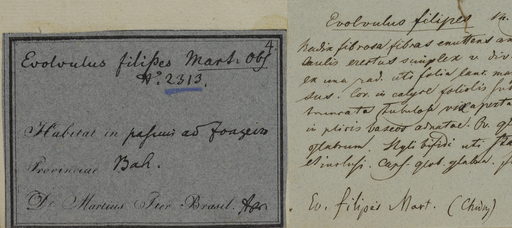 4.
Evolvulus filipes Mart. Obs
No. 2313.
Habitat in pascuis ad Joazeiro
Provinciae Bah.
De Martius Iter Brasil. Apr.
Evolvulus filipes
Radix fibrosa fibras emittens
Caulis erectus simplex v. div
ex una rad. uti folia lant.
sus. Cor. in calyce foliolis
truncata tubulosa vix aperta
in plicis baseos adnatae. Ov. gl
glabrum. Styli bifidi uti
et inclusi. Caps. glob. glabra.
Ev. filipes Mart. (Choisy)